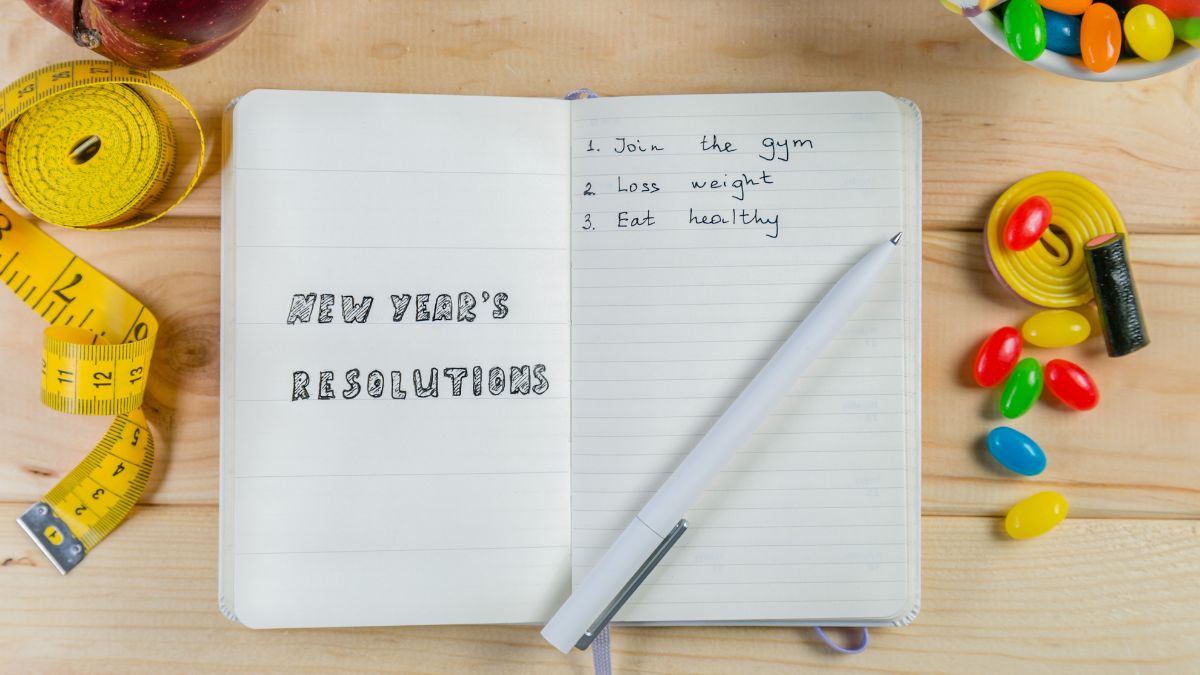 NEW YEAR'S
RESOLUTIONS
1. Join the gym
2. Loss weight
3. Eat healthy
2
11 12 13
5
4
3
2
1